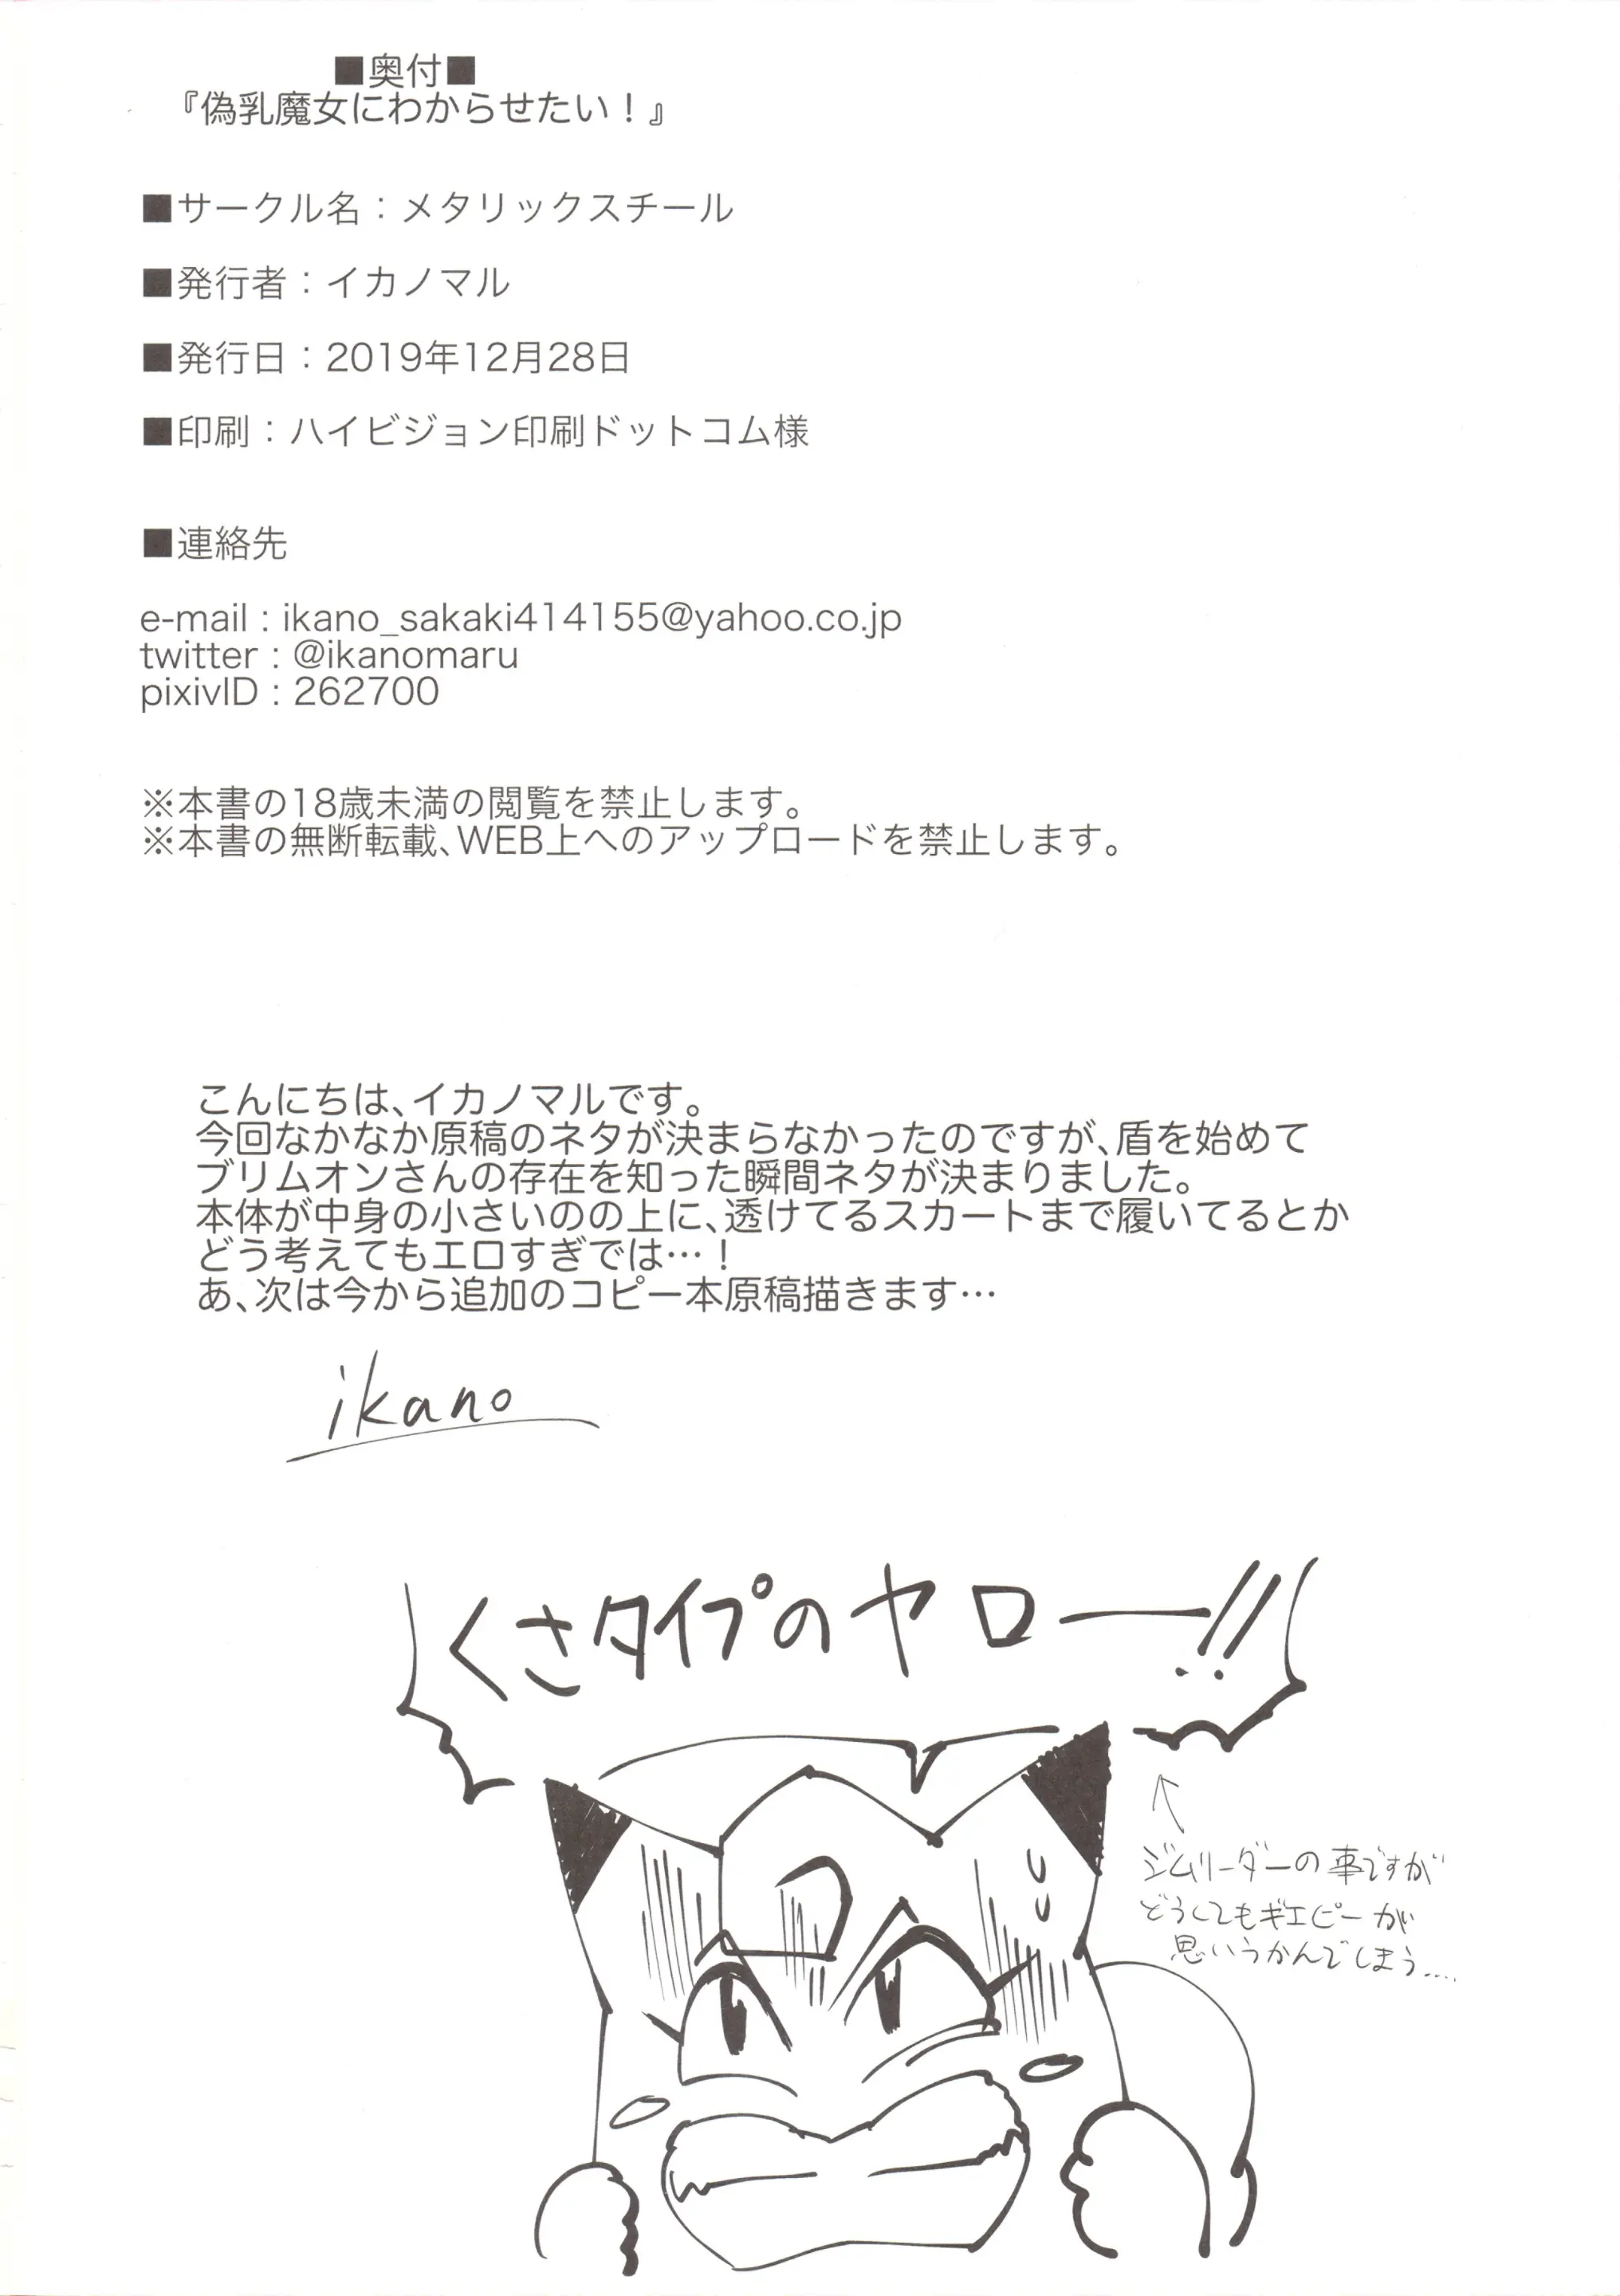 ■奥付■
『偽乳魔女にわからせたい！』
■サークル名：メタリックスチール
■発行者：イカノマル
■発行日：2019年12月28日
■印刷：ハイビジョン印刷ドットコム様
■連絡先
e-mail : ikano_sakaki414155@yahoo.co.jp
twitter : @ikanomaru
pixivID : 262700
※本書の18歳未満の閲覧を禁止します。
※本書の無断転載、WEB上へのアップロードを禁止します。
こんにちは、イカノマルです。
今回なかなか原稿のネタが決まらなかったのですが、盾を始めて
ブリムオンさんの存在を知った瞬間ネタが決まりました。
本体が中身の小さいのの上に、透けてるスカートまで履いてるとか
どう考えてもエロすぎでは…！
あ、次は今から追加のコピー本原稿描きます…
ikano
くさタイプのヤロー!!
ジムリーダーの事ですが
どうしてもギエピーが
思いうかんでしまう....